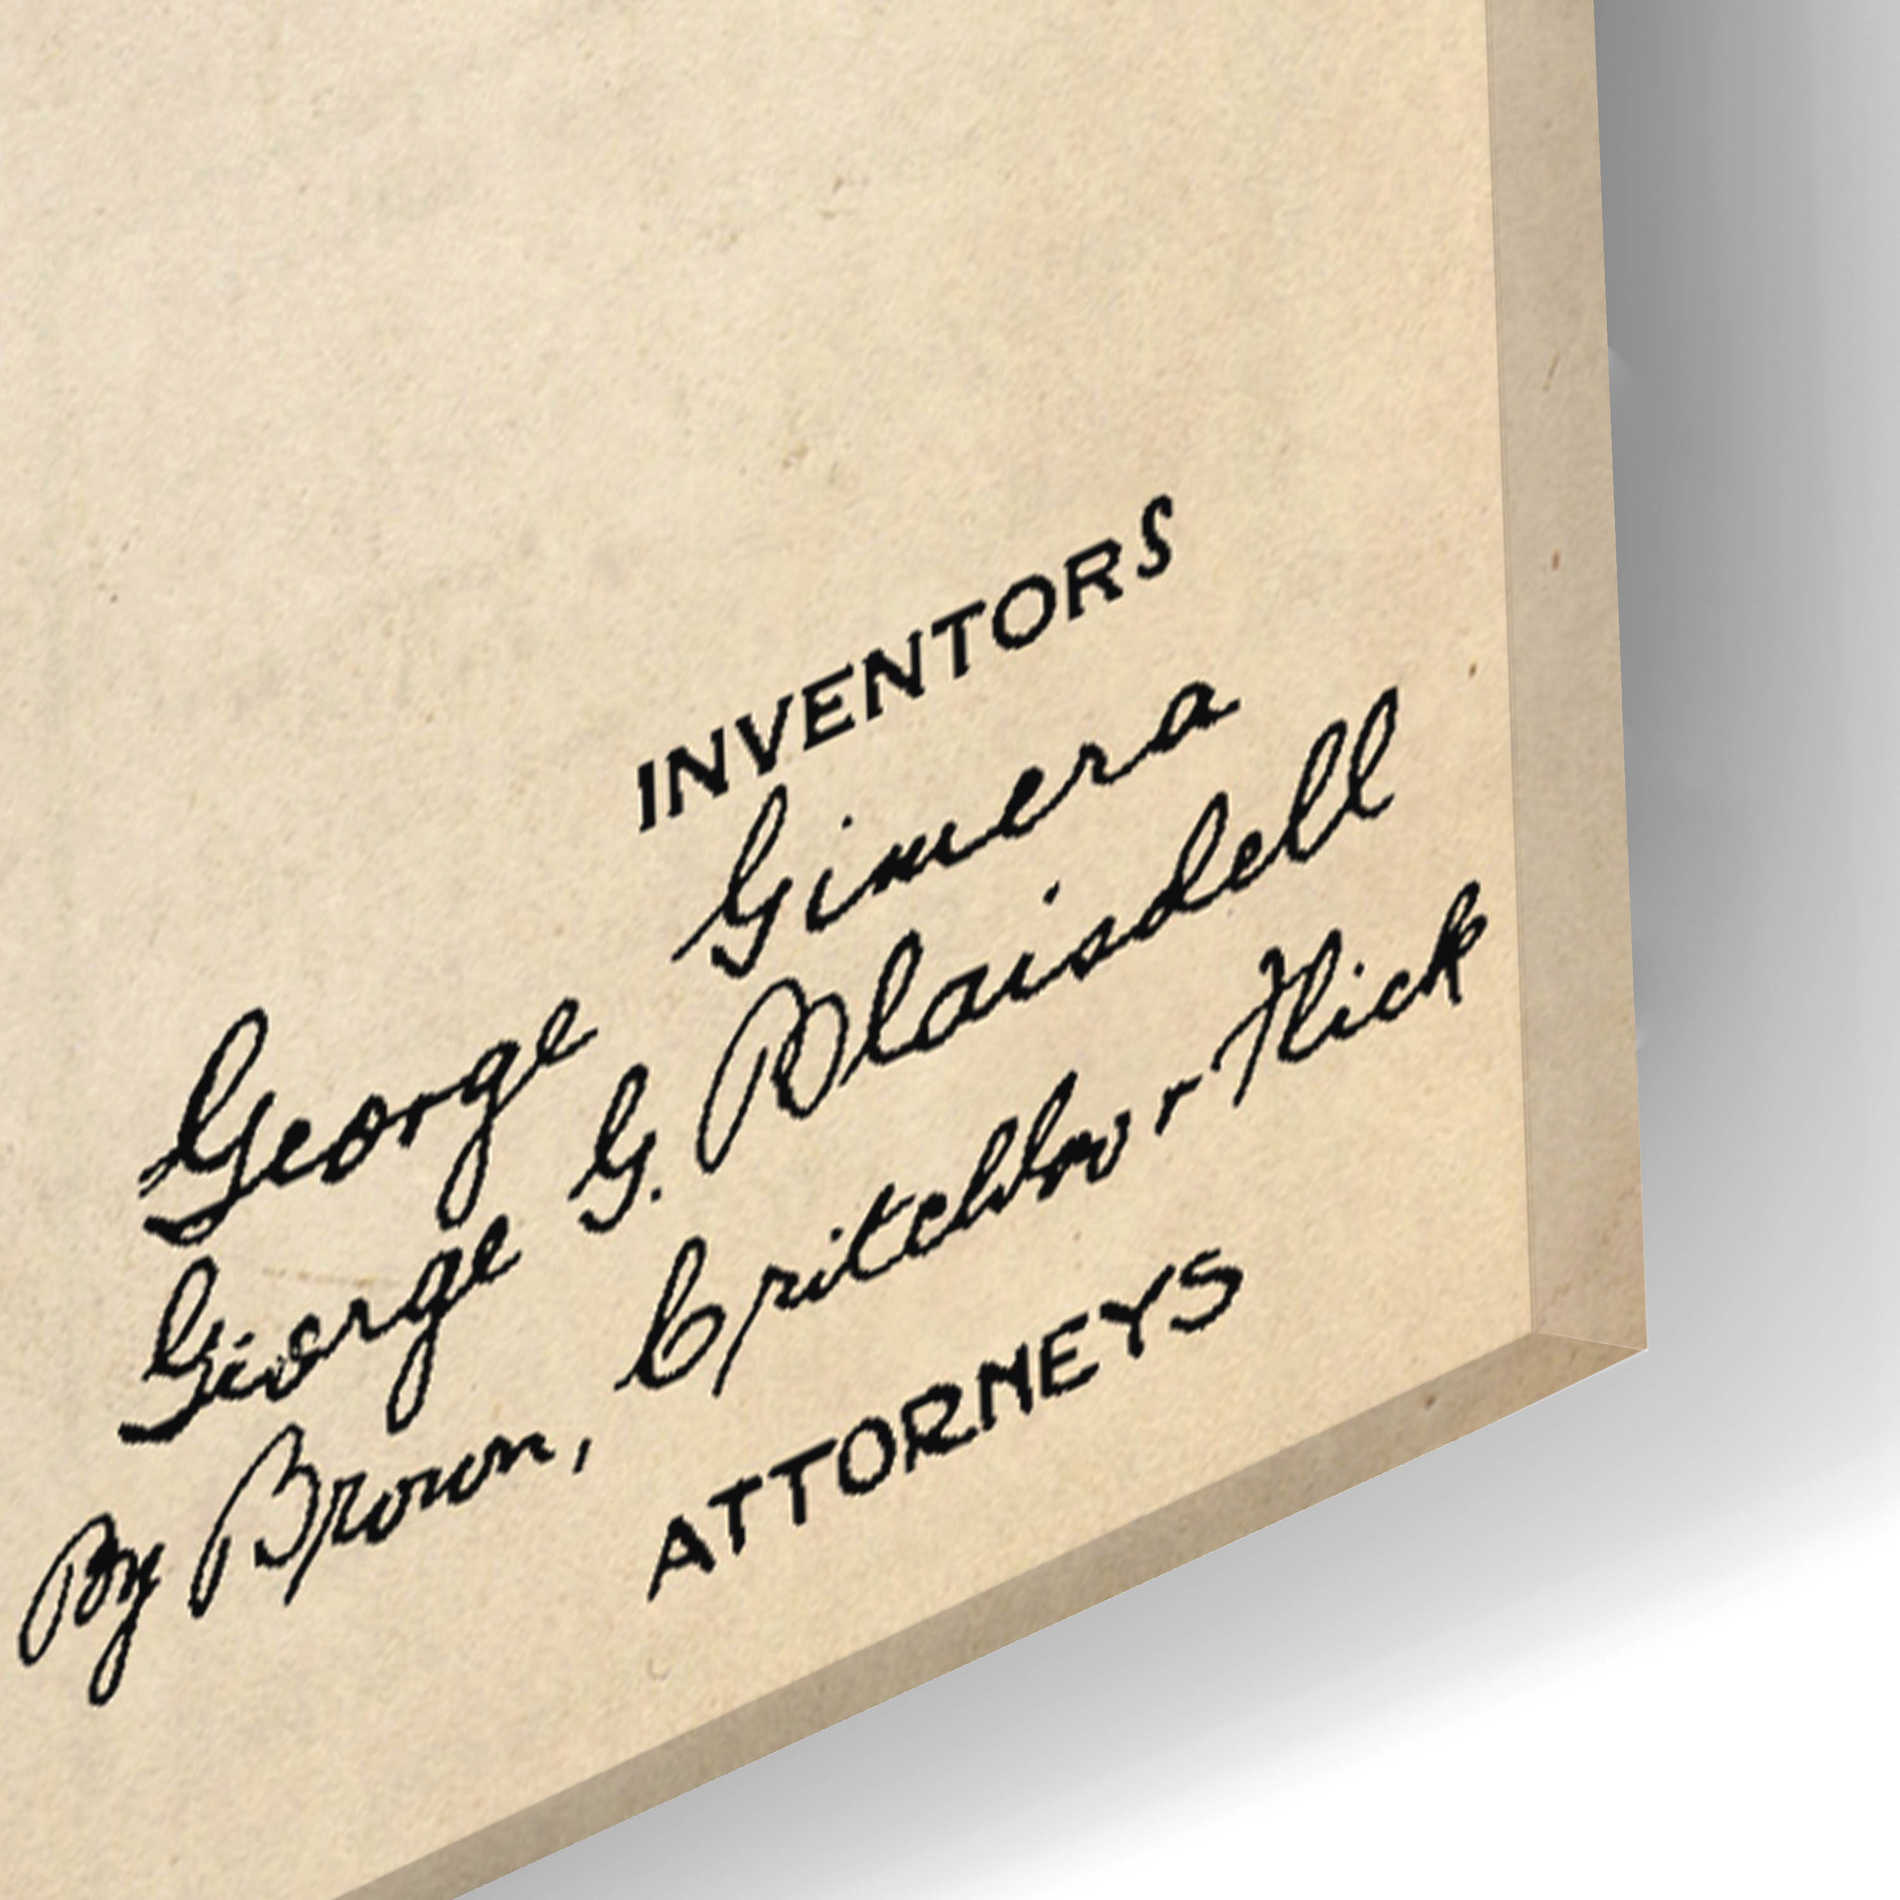 INVENTORS
George Gimera
George G. Blaisdell
By Brown, Critchlow & Flick
ATTORNEYS